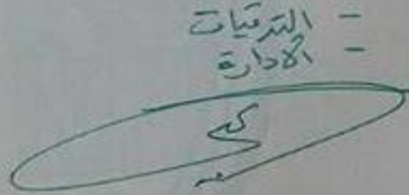 - الترقيات
- الادارة